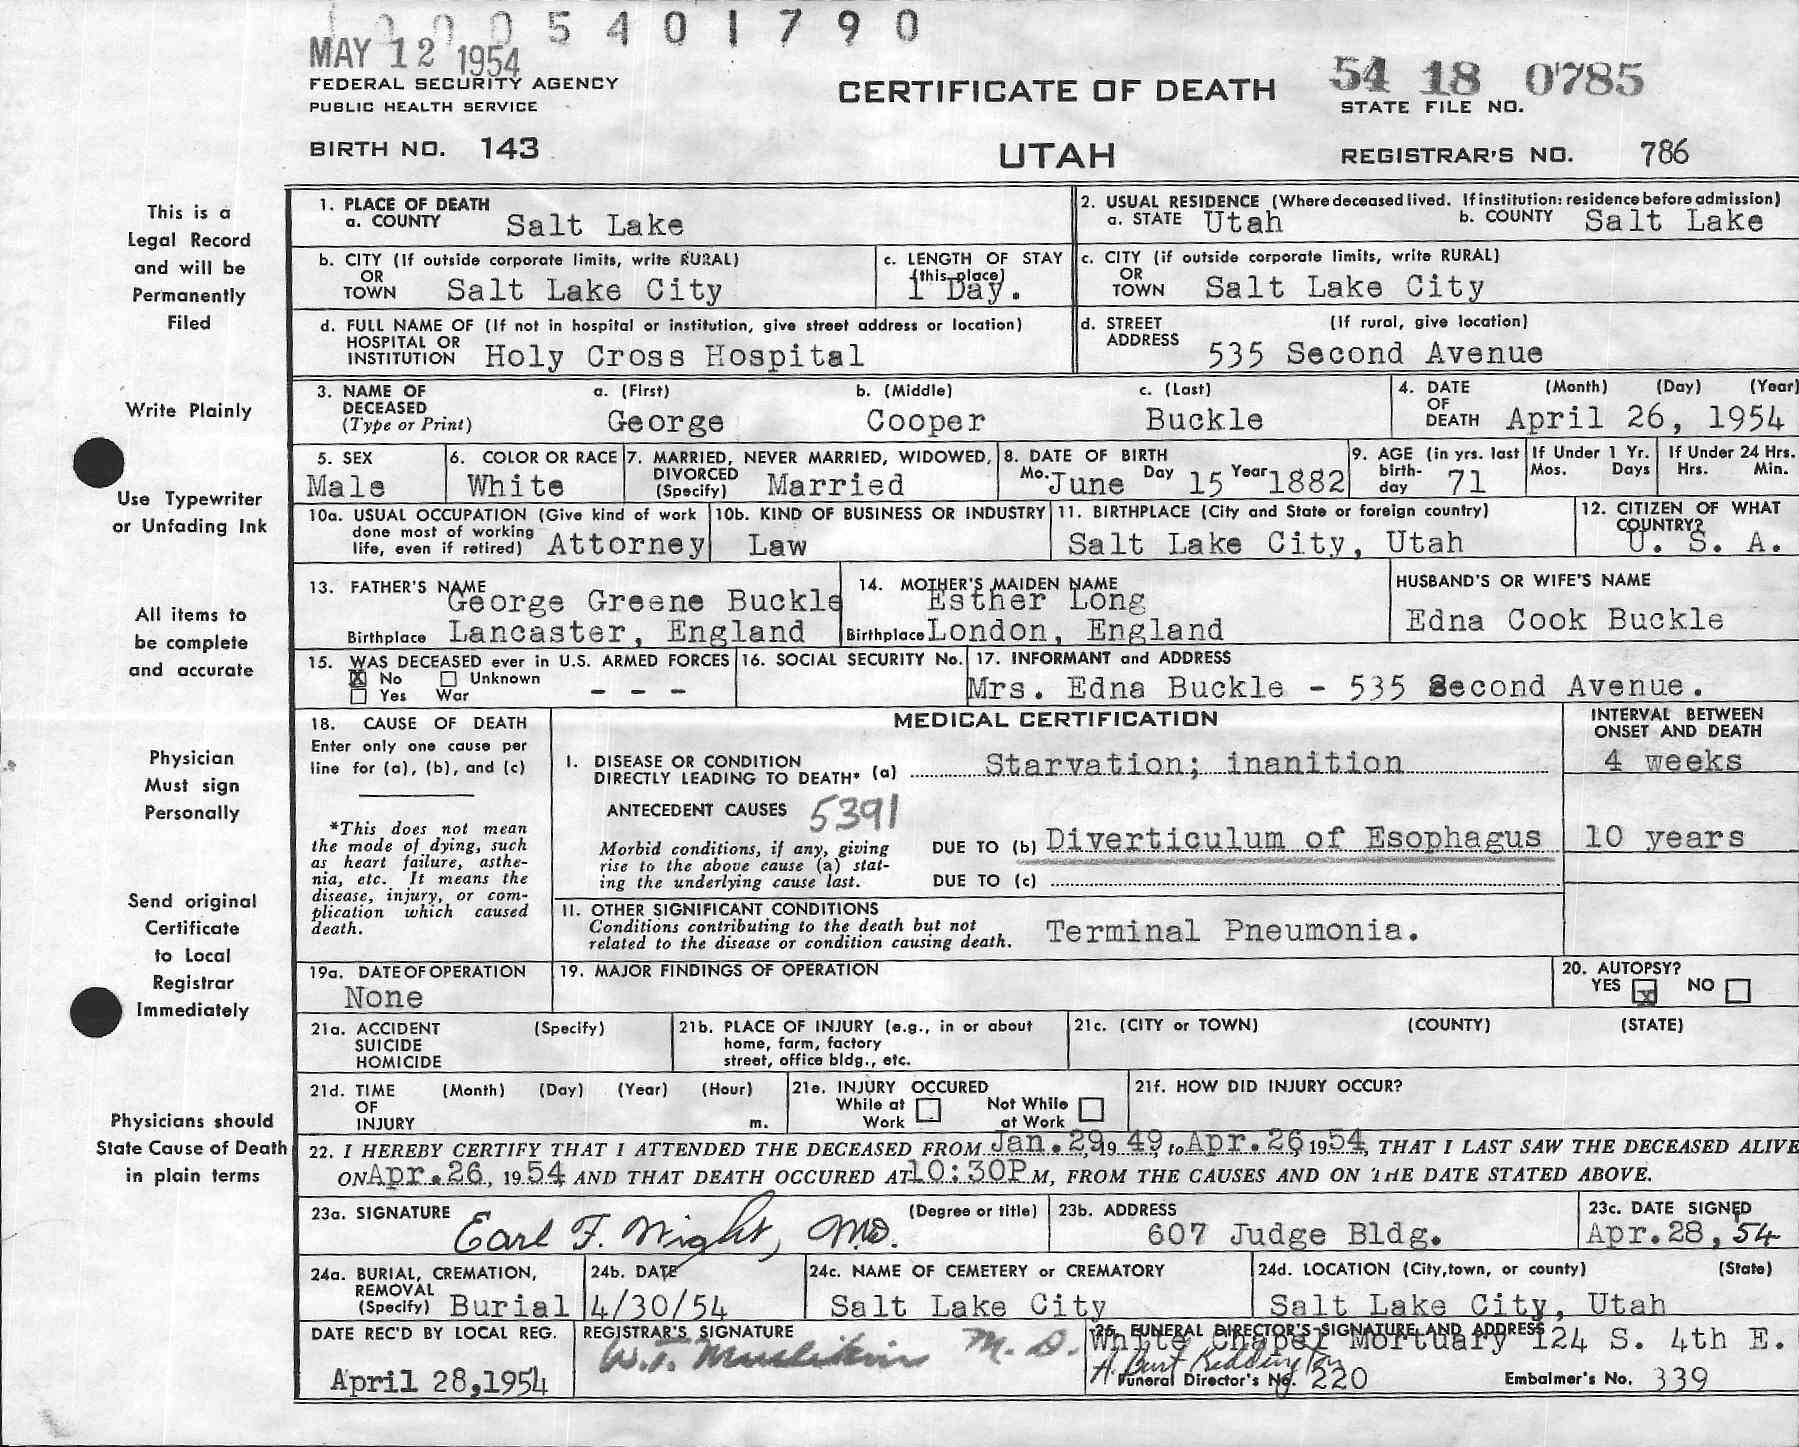 1000 5 4 0 1 7 9 0
MAY 12 1954
FEDERAL SECURITY AGENCY
PUBLIC HEALTH SERVICE
CERTIFICATE OF DEATH
54 18 0785
STATE FILE NO.
BIRTH NO. 143
UTAH
REGISTRAR'S NO. 786
This is a
Legal Record
and will be
Permanently
Filed
Write Plainly
Use Typewriter
or Unfading Ink
All items to
be complete
and accurate
Physician
Must sign
Personally
Send original
Certificate
to Local
Registrar
Immediately
Physicians should
State Cause of Death
in plain terms
1. PLACE OF DEATH
a. COUNTY Salt Lake
2. USUAL RESIDENCE (Where deceased lived. If institution: residence before admission)
a. STATE Utah b. COUNTY Salt Lake
b. CITY (If outside corporate limits, write RURAL)
OR
TOWN Salt Lake City
c. LENGTH OF STAY
(this place)
1 Day.
c. CITY (if outside corporate limits, write RURAL)
OR
TOWN Salt Lake City
d. FULL NAME OF (If not in hospital or institution, give street address or location)
HOSPITAL OR
INSTITUTION Holy Cross Hospital
d. STREET (If rural, give location)
ADDRESS
535 Second Avenue
3. NAME OF a. (First) b. (Middle) c. (Last)
DECEASED
(Type or Print) George Cooper Buckle
4. DATE (Month) (Day) (Year)
OF
DEATH April 26, 1954
5. SEX
Male
6. COLOR OR RACE
White
7. MARRIED, NEVER MARRIED, WIDOWED,
DIVORCED
(Specify) Married
8. DATE OF BIRTH
Mo. June Day 15 Year 1882
9. AGE (in yrs. last
birth-
day 71
If Under 1 Yr.
Mos. Days
If Under 24 Hrs.
Hrs. Min.
10a. USUAL OCCUPATION (Give kind of work
done most of working
life, even if retired) Attorney
10b. KIND OF BUSINESS OR INDUSTRY
Law
11. BIRTHPLACE (City and State or foreign country)
Salt Lake City, Utah
12. CITIZEN OF WHAT
COUNTRY?
U. S. A.
13. FATHER'S NAME
George Greene Buckle
Birthplace Lancaster, England
14. MOTHER'S MAIDEN NAME
Esther Long
Birthplace London, England
HUSBAND'S OR WIFE'S NAME
Edna Cook Buckle
15. WAS DECEASED ever in U.S. ARMED FORCES
X No Unknown
Yes War - - -
16. SOCIAL SECURITY No.
17. INFORMANT and ADDRESS
Mrs. Edna Buckle - 535 Second Avenue.
18. CAUSE OF DEATH
Enter only one cause per
line for (a), (b), and (c)
*This does not mean
the mode of dying, such
as heart failure, asthe-
nia, etc. It means the
disease, injury, or com-
plication which caused
death.
MEDICAL CERTIFICATION
INTERVAL BETWEEN
ONSET AND DEATH
I. DISEASE OR CONDITION
DIRECTLY LEADING TO DEATH* (a) Starvation; inanition 4 weeks
ANTECEDENT CAUSES 5391
Morbid conditions, if any, giving
rise to the above cause (a) stat-
ing the underlying cause last.
DUE TO (b) Diverticulum of Esophagus 10 years
DUE TO (c)
II. OTHER SIGNIFICANT CONDITIONS
Conditions contributing to the death but not
related to the disease or condition causing death.
Terminal Pneumonia.
19a. DATE OF OPERATION
None
19. MAJOR FINDINGS OF OPERATION
20. AUTOPSY?
YES x NO
21a. ACCIDENT (Specify)
SUICIDE
HOMICIDE
21b. PLACE OF INJURY (e.g., in or about
home, farm, factory
street, office bldg., etc.
21c. (CITY or TOWN) (COUNTY) (STATE)
21d. TIME (Month) (Day) (Year) (Hour)
OF
INJURY m.
21e. INJURY OCCURED
While at Not While
Work at Work
21f. HOW DID INJURY OCCUR?
22. I HEREBY CERTIFY THAT I ATTENDED THE DECEASED FROM Jan. 29, 19 49 to Apr. 26 1954, THAT I LAST SAW THE DECEASED ALIVE
ON Apr. 26, 19 54 AND THAT DEATH OCCURED AT 10:30P M, FROM THE CAUSES AND ON THE DATE STATED ABOVE.
23a. SIGNATURE (Degree or title)
Earl F. Wight, MD.
23b. ADDRESS
607 Judge Bldg.
23c. DATE SIGNED
Apr. 28, 54
24a. BURIAL, CREMATION,
REMOVAL
(Specify) Burial
24b. DATE
4/30/54
24c. NAME OF CEMETERY or CREMATORY
Salt Lake City
24d. LOCATION (City, town, or county) (State)
Salt Lake City, Utah
DATE REC'D BY LOCAL REG.
April 28, 1954
REGISTRAR'S SIGNATURE
W.T. M. D.
25. FUNERAL DIRECTOR'S SIGNATURE AND ADDRESS
White Chapel Mortuary 124 S. 4th E.
A. Burt Reddington
Funeral Director's No. 220 Embalmer's No. 339